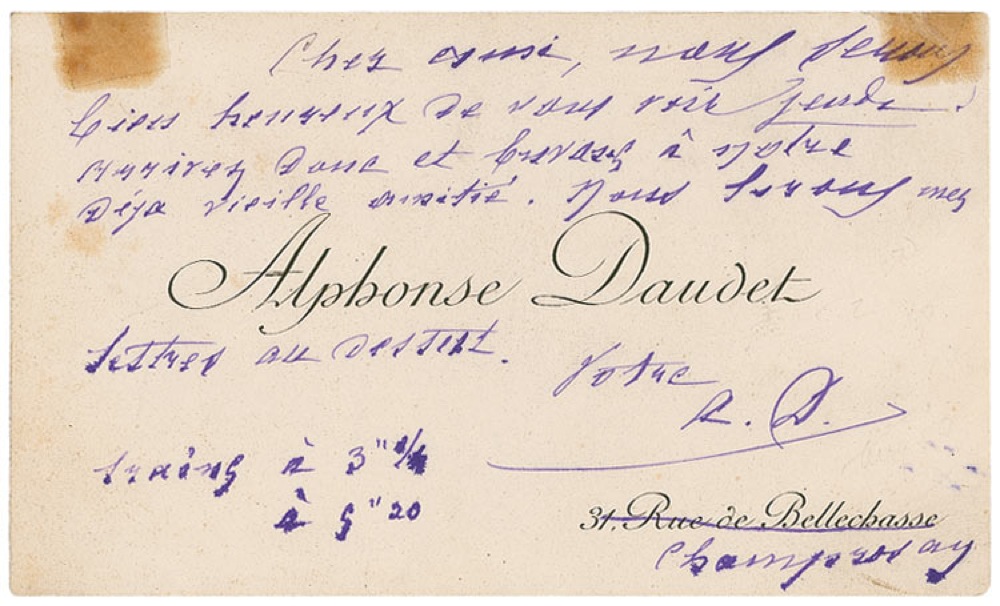 Cher ami, nous serons
bien heureux de vous voir jeudi.
arrivez donc et buvons à notre
déjà vieille amitié. Nous lirons mes
Alphonse Daudet
lettres au dessert.
Votre
A. D.
trains à 3" 1/4
à 5" 20
31, Rue de Bellechasse
Champrosay